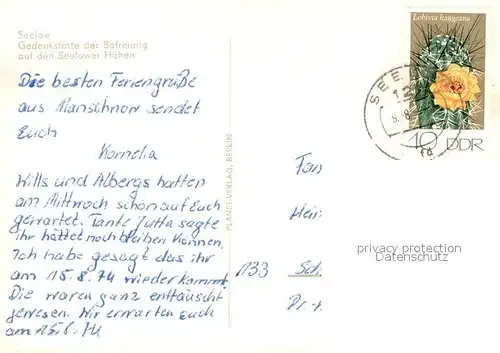 Seelow
Gedenkstätte der Befreiung
auf den Seelower Höhen
Die besten Feriengrüße
aus Manschnow sendet
Euch
Kornelia
Wills und Albergs hatten
am Mittwoch schon auf Euch
gewartet. Tante Jutta sagte
ihr hättet noch bleiben können,
Ich habe gesagt das ihr
am 15.8.74 wiederkommt.
Die waren ganz enttäuscht
gewesen. Wir erwarten Euch
am 15.8.74
PLANET-VERLAG, BERLIN
Lobivia haageana
10 DDR
SEE
Fam
Hein
1133
privacy protection
Datenschutz